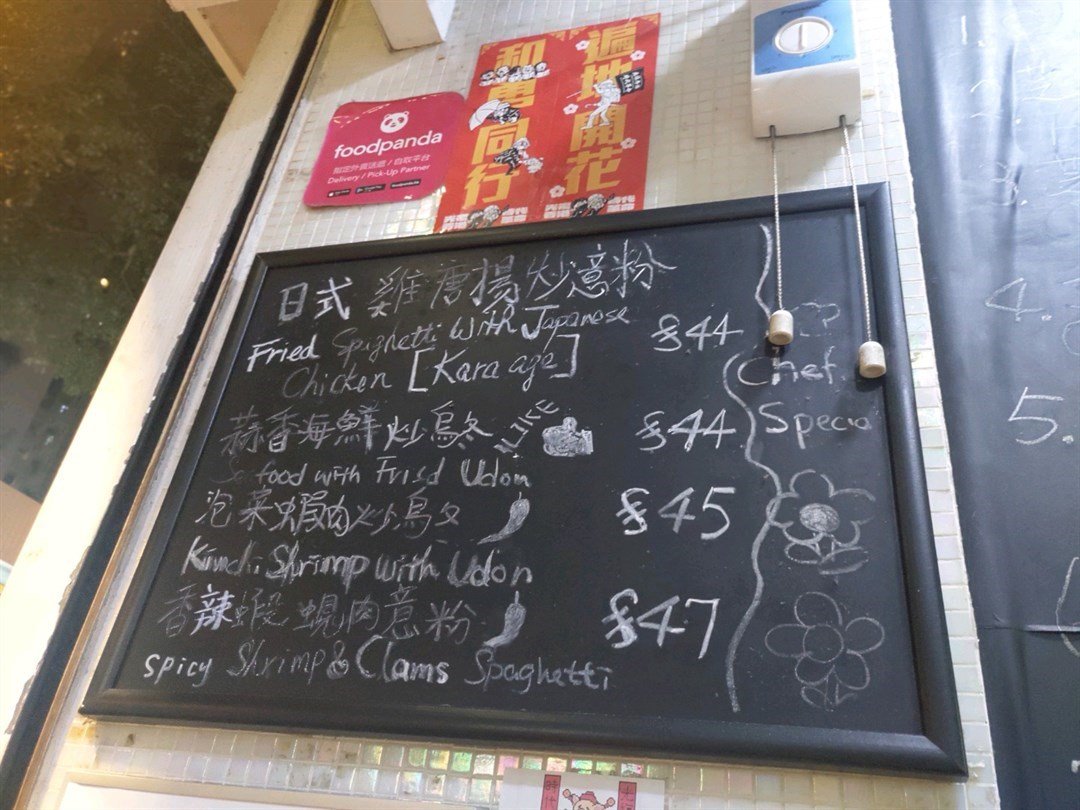 遍地開花
和勇同行
foodpanda
指定外賣送遞 / 自取平台
Delivery / Pick-Up Partner
日式 雞唐揚炒意粉
Fried Spighetti with Japanese $44
Chicken [Kara age]
Chef
Specia
蒜香海鮮炒烏冬 LIKE $44
food with Fried Udon
泡菜蝦肉炒烏冬 $45
Kimchi Shrimp with Udon
香辣蝦蜆肉意粉 $47
Spicy Shrimp & Clams Spaghetti
4.
5.